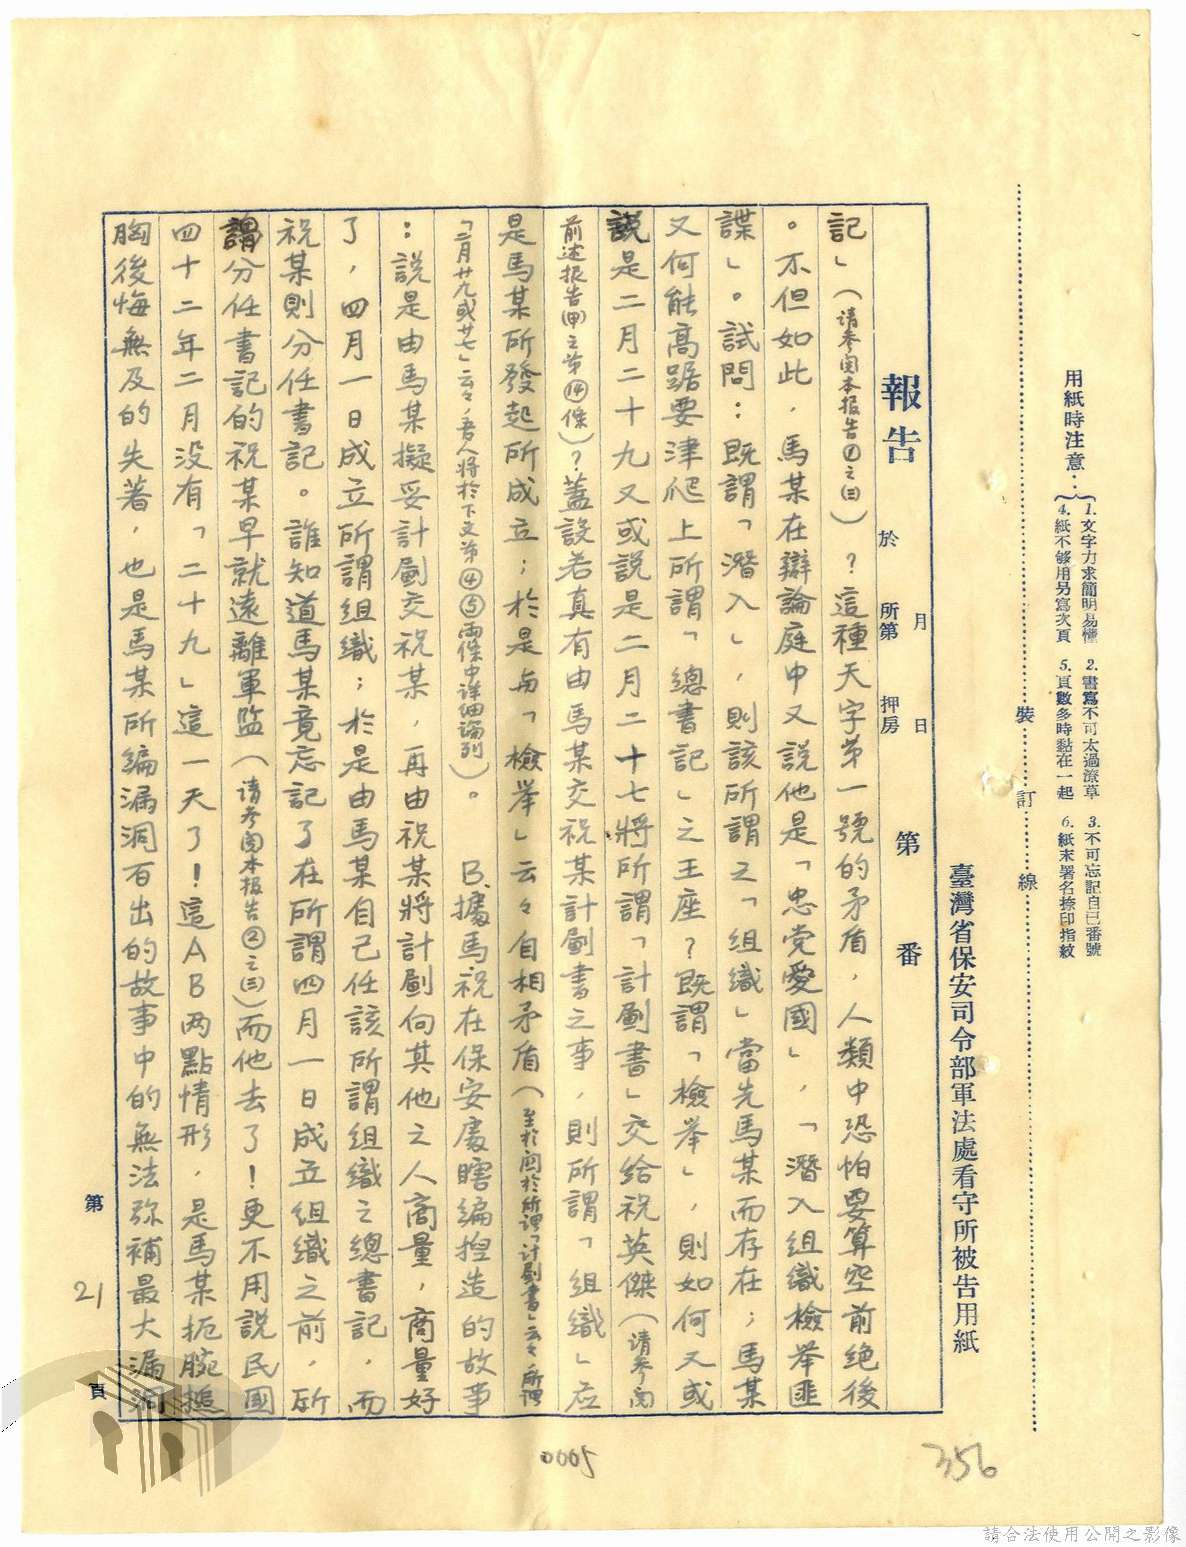 用紙時注意：{1.文字力求簡明易懂 2.書寫不可太過潦草 3.不可忘記自己番號
4.紙不够用另寫次頁 5.頁數多時黏在一起 6.紙末署名捺印指紋
裝 訂 線
臺灣省保安司令部軍法處看守所被告用紙
報告 於 月 日
所第 押房 第 番
記」（请参阅本报告①之㈢）？這種天字第一號的矛盾，人類中恐怕要算空前絶後
。不但如此，馬某在辯論庭中又説他是「忠党愛國」，「潛入組織檢举匪
諜」。試問：既謂「潛入」，則該所謂之「組織」當先馬某而存在；馬某
又何能高踞要津爬上所謂「總書記」之王座？既謂「檢举」，則如何又或
説是二月二十九又或説是二月二十七將所謂「計劃書」交给祝英傑（请参阅
前述报告㈥之第⑭條）？蓋設若真有由馬某交祝某計劃書之事，則所謂「組織」应
是馬某所發起所成立；於是与「檢举」云々自相矛盾（至於関於所谓「计劃書」云々所谓
「二月廿九或廿七」云々，吾人将於下文第④⑤两條中详细論列）。　B.據馬祝在保安處瞎编揑造的故事
：説是由馬某擬妥計劃交祝某，再由祝某將計劃向其他之人商量，商量好
了，四月一日成立所謂組織；於是由馬某自己任該所謂組織之總書記，而
祝某則分任書記。誰知道馬某竟忘記了在所謂四月一日成立組織之前，所
謂分任書記的祝某早就遠離軍监（请参阅本报告②之㈢）而他去了！更不用説民國
四十二年二月没有「二十九」這一天了！這AB两點情形，是馬某扼腕搥
胸後悔無及的失著，也是馬某所編漏洞百出的故事中的無法弥補最大漏洞
第 21 頁
0005
356
請合法使用公開之影像